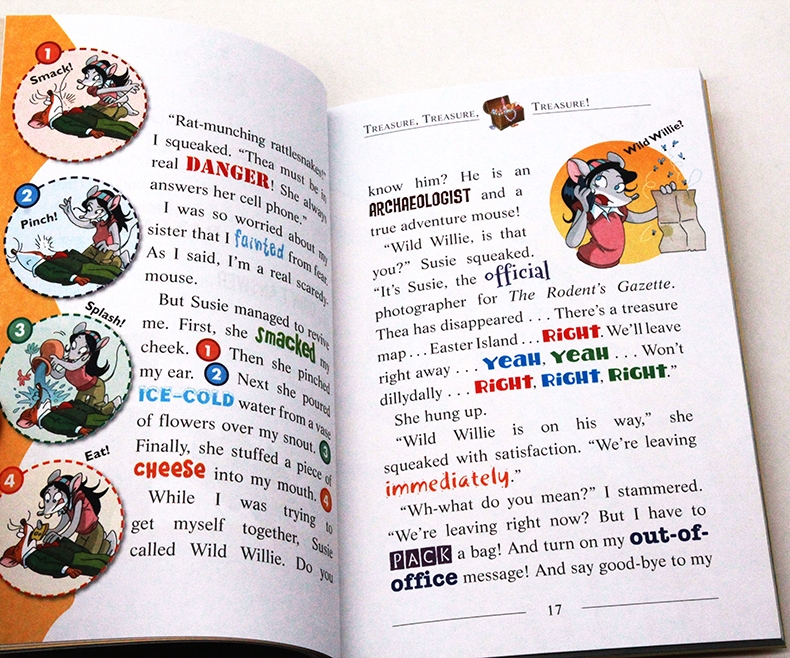 1
Smack!
2
Pinch!
Splash!
3
Eat!
4
"Rat-munching rattlesnakes!"
I squeaked. "Thea must be in
real DANGER! She always
answers her cell phone."
I was so worried about my
sister that I fainted from fear.
As I said, I'm a real scaredy-
mouse.
But Susie managed to revive
me. First, she smacked my
cheek. 1 Then she pinched
my ear. 2 Next she poured
ICE-COLD water from a vase
of flowers over my snout. 3
Finally, she stuffed a piece of
CHEESE into my mouth. 4
While I was trying to
get myself together, Susie
called Wild Willie. Do you
TREASURE, TREASURE, TREASURE!
Wild Willie?
know him? He is an
ARCHAEOLOGIST and a
true adventure mouse!
"Wild Willie, is that
you?" Susie squeaked.
"It's Susie, the official
photographer for The Rodent's Gazette.
Thea has disappeared . . . There's a treasure
map . . . Easter Island . . . RIGHT. We'll leave
right away . . . YEAH, YEAH . . . Won't
dillydally . . . RIGHT, RIGHT, RIGHT."
She hung up.
"Wild Willie is on his way," she
squeaked with satisfaction. "We're leaving
immediately."
"Wh-what do you mean?" I stammered.
"We're leaving right now? But I have to
PACK a bag! And turn on my out-of-
office message! And say good-bye to my
17